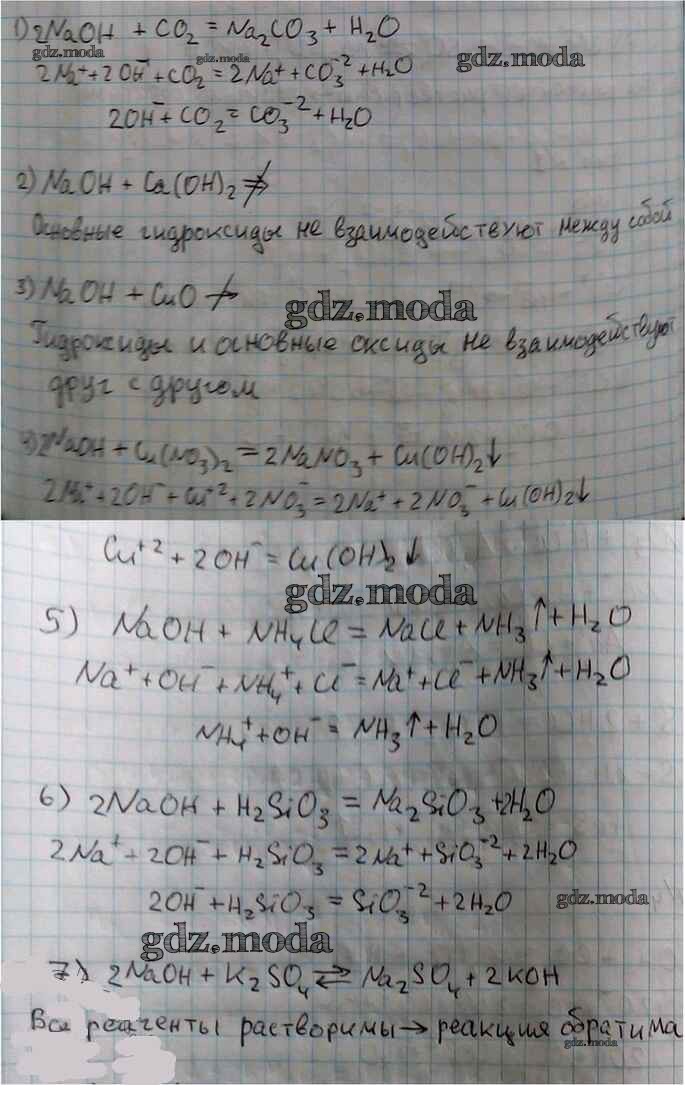 1) 2NaOH + CO₂ = Na₂CO₃ + H₂O
gdz.moda
gdz.moda
2Na⁺ + 2OH⁻ + CO₂ = 2Na⁺ + CO₃⁻² + H₂O
2OH⁻ + CO₂ = CO₃⁻² + H₂O
2) NaOH + Ca(OH)₂ ⇏
Основные гидроксиды не взаимодействуют между собой
3) NaOH + CuO ↛
gdz.moda
Гидроксиды и основные оксиды не взаимодействуют
друг с другом
4) 2NaOH + Cu(NO₃)₂ = 2NaNO₃ + Cu(OH)₂↓
2Na⁺ + 2OH⁻ + Cu⁺² + 2NO₃⁻ = 2Na⁺ + 2NO₃⁻ + Cu(OH)₂↓
Cu⁺² + 2OH⁻ = Cu(OH)₂↓
gdz.moda
5) NaOH + NH₄Cl = NaCl + NH₃↑ + H₂O
Na⁺ + OH⁻ + NH₄⁺ + Cl⁻ = Na⁺ + Cl⁻ + NH₃↑ + H₂O
NH₄⁺ + OH⁻ = NH₃↑ + H₂O
6) 2NaOH + H₂SiO₃ = Na₂SiO₃ + 2H₂O
2Na⁺ + 2OH⁻ + H₂SiO₃ = 2Na⁺ + SiO₃⁻² + 2H₂O
2OH⁻ + H₂SiO₃ = SiO₃⁻² + 2H₂O
gdz.moda
gdz.moda
7) 2NaOH + K₂SO₄ ⇌ Na₂SO₄ + 2KOH
Все реагенты растворимы → реакция обратима
gdz.moda